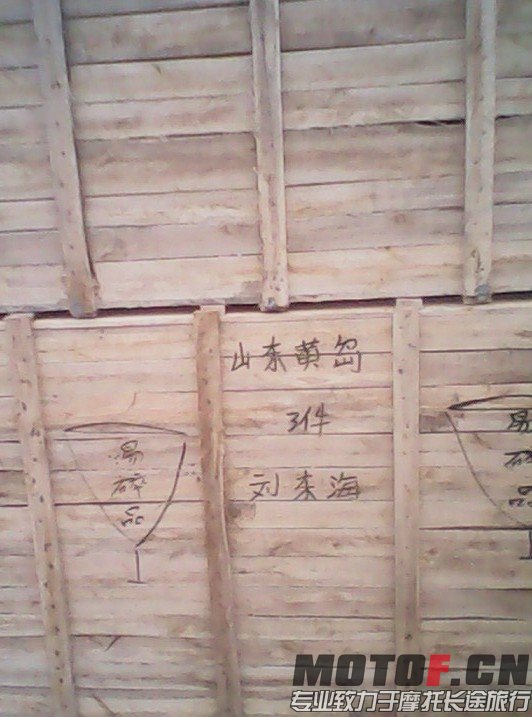 山东黄岛
3件
刘来海
易碎品
易碎品
MOTOF.CN
专业致力于摩托长途旅行